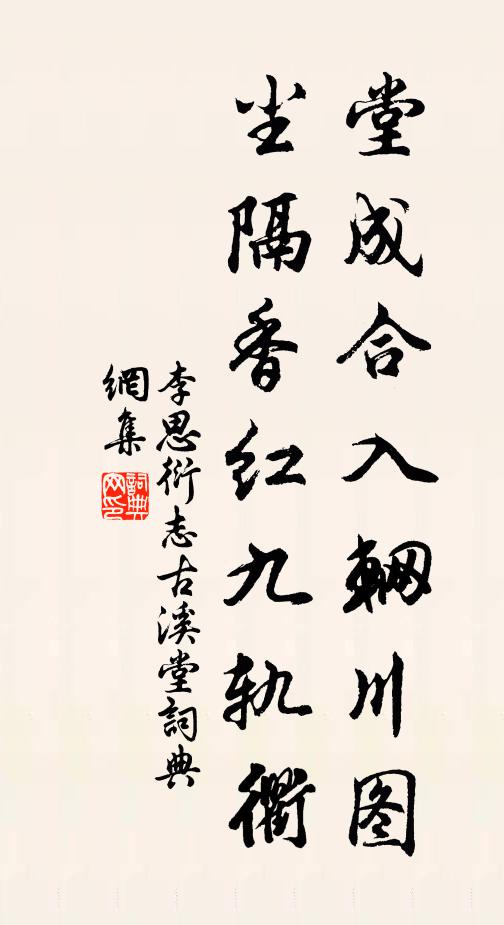 堂成合入辋川图
尘隔香红九轨衢
李思衍志古溪堂詞典
網集
詞典
网印